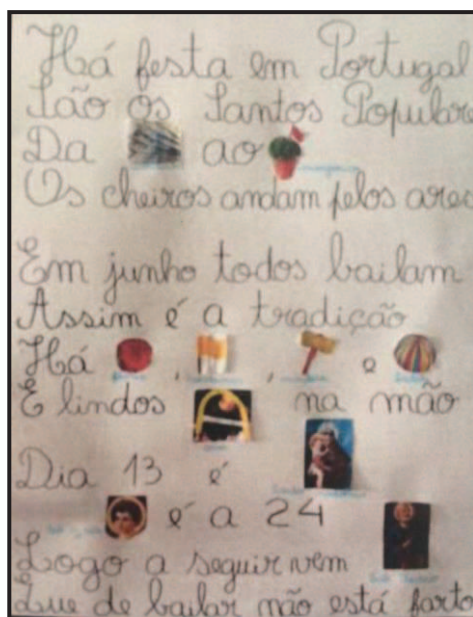 Há festa em Portugal
São os Santos Populare
Da ao
Os cheiros andam pelos ares
Em junho todos bailam
Assim é a tradição
Há , , e
E lindos na mão
Dia 13 é
é a 24
Logo a seguir vem
Que de bailar não está farto